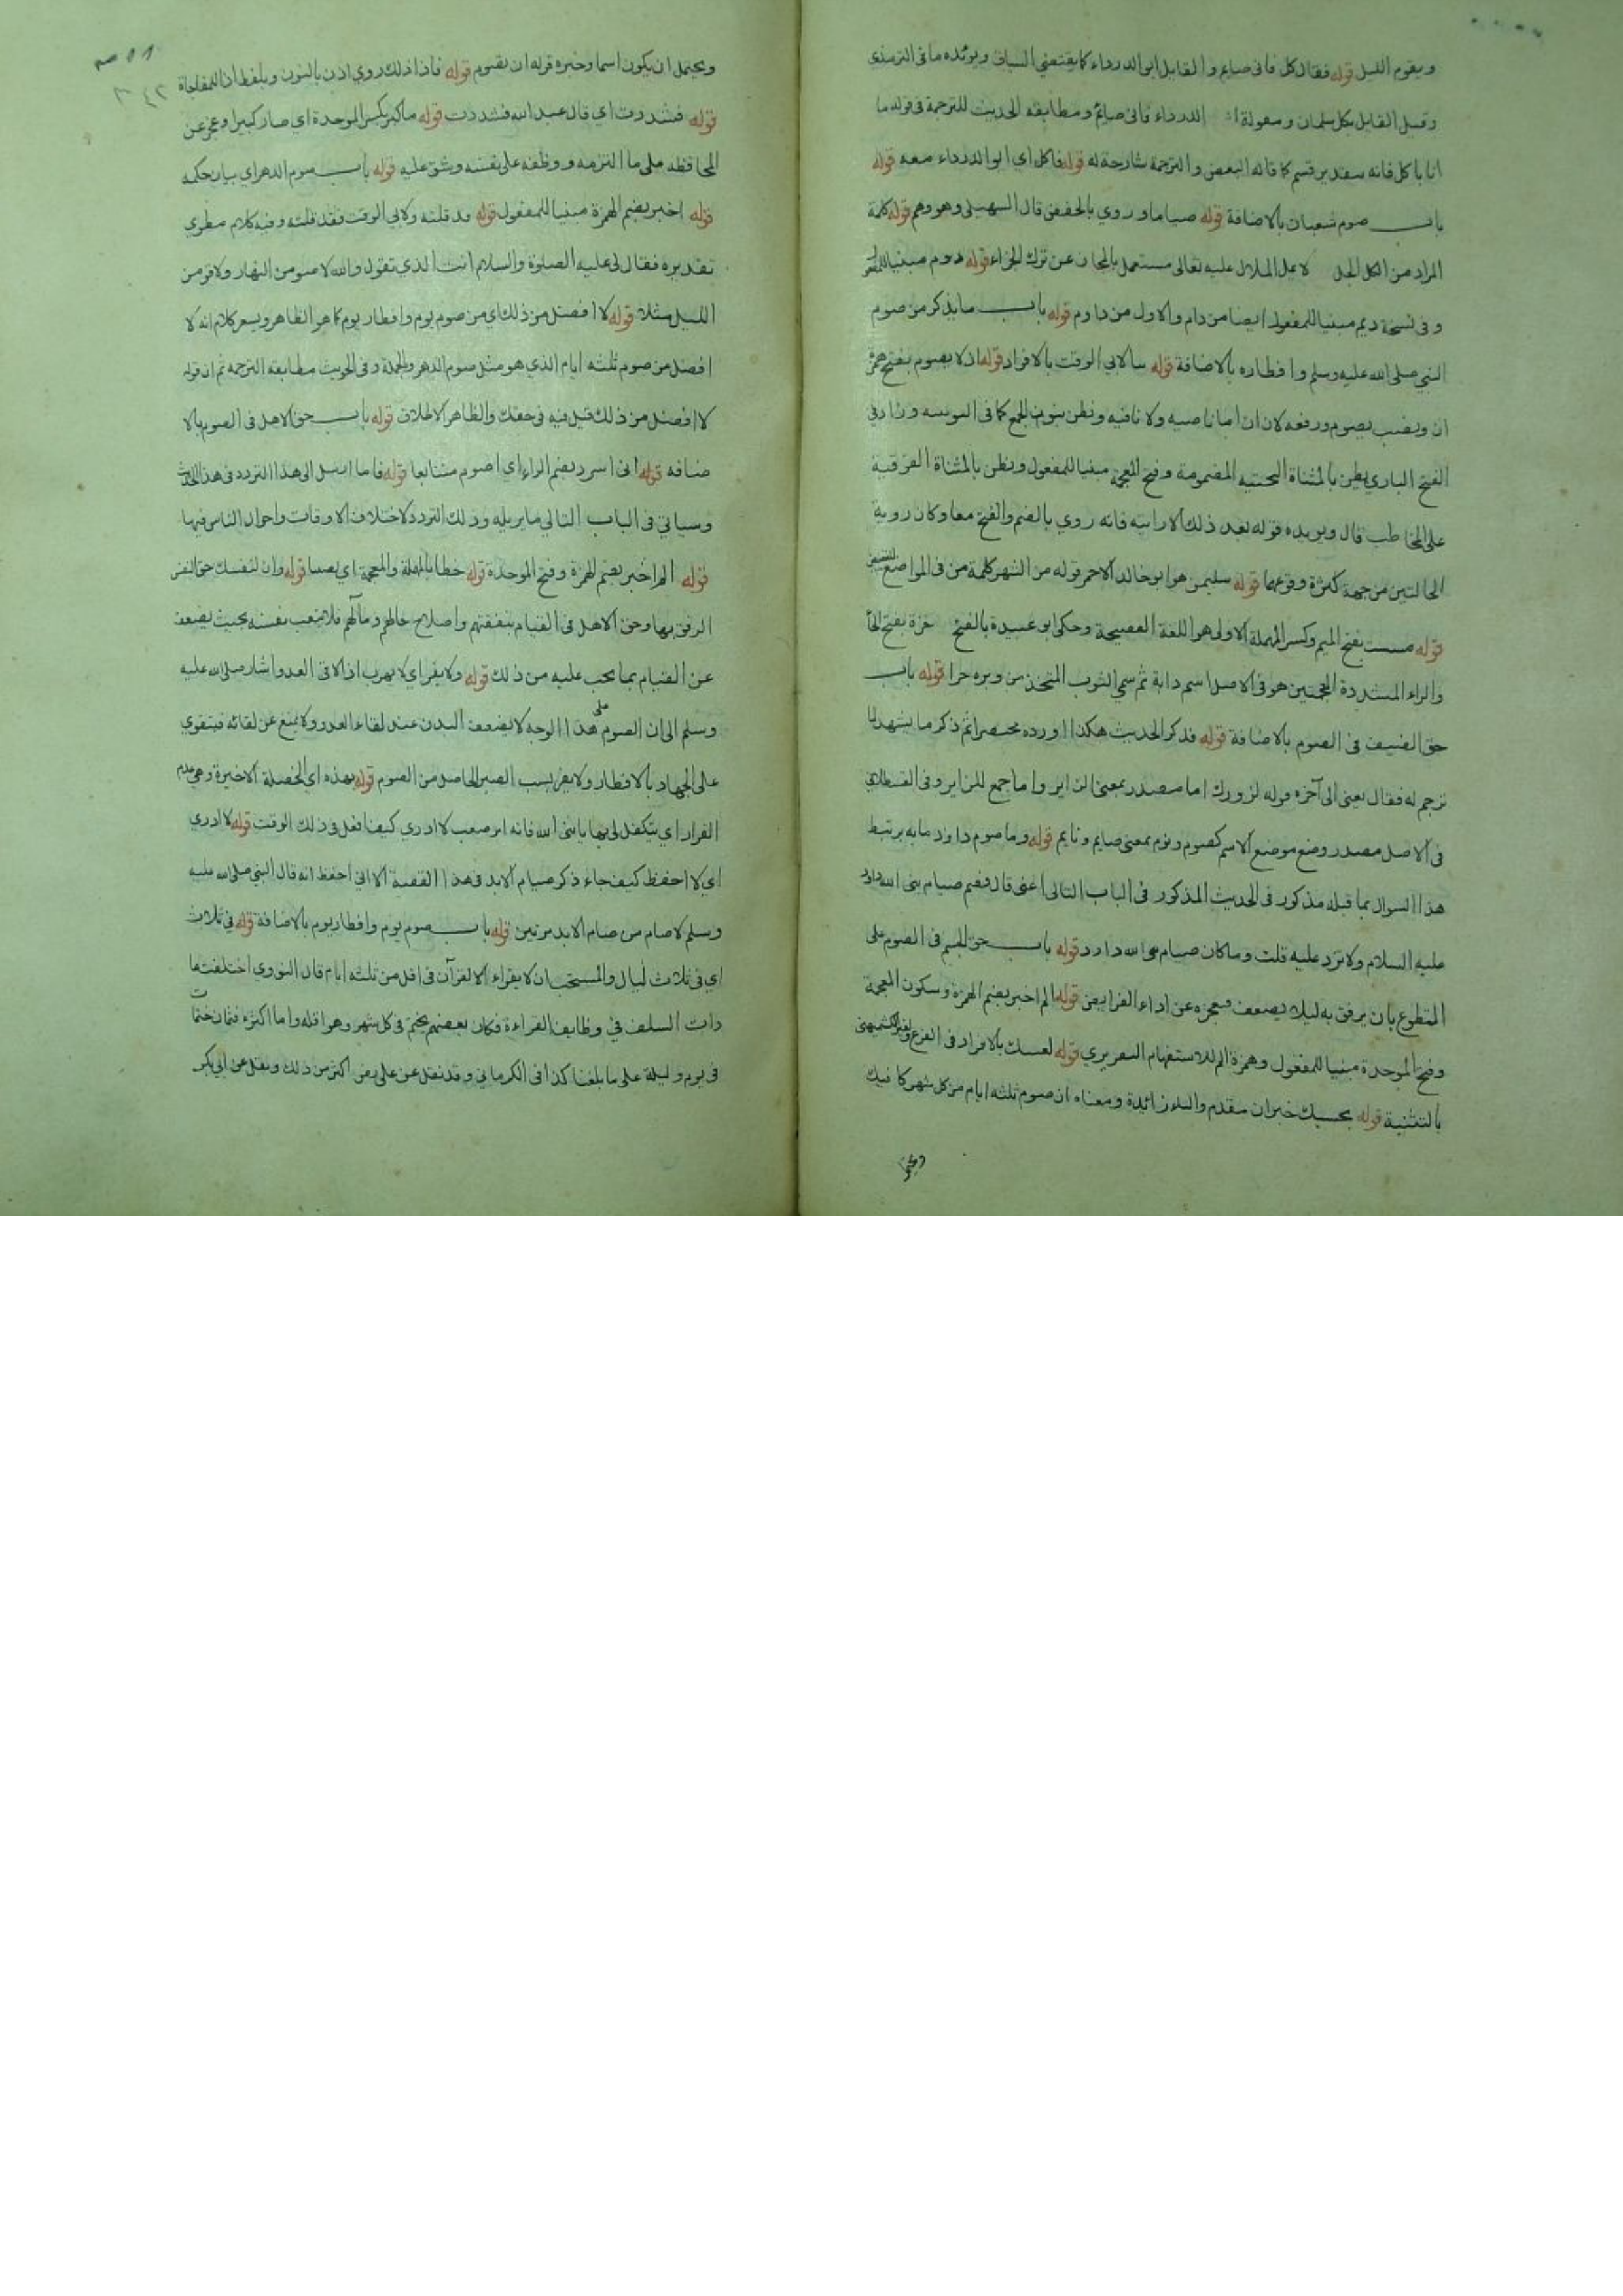 ويقوم الليل قوله فقال كل فاني صايم والقايل ابو الدرداء كما يقتضي السياق ويؤيده ما في الترمذي
وقيل القايل كل سلمان ومقولة الدرداء فاني صايم ومطابقة الحديث للترجمة في قوله ما
انا باكل فانه بتقدير قسم كما قاله البعض والترجمة شارحة له قوله فاكل اي ابو الدرداء معه قوله
باب صوم شعبان بالاضافة قوله صياما وروي بالخفض قال السهيلي وهو وهم قوله كلمة
المراد من الكل الجل لا عل الملال عليه تعالى مستعمل بالمجاز عن ترك الجزاء قوله دووم مبنيا للمفعول
وفي نسخة ديم مبنيا للمفعول ايضا من دام والاول من داوم قوله باب ما يذكر من صوم
النبي صلى الله عليه وسلم وافطاره بالاضافة قوله سا لابي الوقت بالافراد قوله ان لا يصوم بفتح همزة
ان ونصب يصوم ورفعه لان ان اما ناصبه ولا نافيه ونظن بنون الجمع كما في اليونينيه وزاد في
الفتح الباري يظن بالمثناة التحتيه المضمومة وفتح المعجمة مبنيا للمفعول وتظن بالمثناة الفوقية
على المخاطب قال ويؤيده قوله بعد ذلك الا رايته فانه روي بالضم والفتح معا وكان روية
الحالتين من جهة كثرة وقوعها قوله سليمن هو ابو خالد الاحمر قوله من الشهر كلمة من في المواضع للتبعيض
قوله مسست بفتح الميم وكسر المهملة الاولى هو اللغة الفصيحة وحكى ابو عبيدة بالفتح خزة بفتح الخا
والزاء المشددة المعجمتين هو في الاصل اسم دابة ثم سمي الثوب المتخذ من وبره خزا قوله باب
حق الضيف في الصوم بالاضافة قوله فذكر الحديث هكذا اورده مختصرا ثم ذكر ما يشهد لما
ترجم له فقال يعني الى آخره قوله لزورك اما مصدر بمعنى الزاير واما جمع للزاير وفي القسطلاني
في الاصل مصدر وضع موضع الاسم كصوم ونوم بمعنى صايم ونايم قوله وما صوم داود ما به يرتبط
هذا السوال بما قبله مذكور في الحديث المذكور في الباب التالي اعني قال فصم صيام نبي الله داود
عليه السلام ولا تزد عليه قلت وما كان صيام نبي الله داود قوله باب حق الجسم في الصوم على
المتطوع بان يرفق به ليلا يضعف فيعجزه عن اداء الفرايض قوله الم اخبر بضم الهمزة وسكون المعجمة
وفتح الموحدة مبنيا للمفعول وهمزة الم للاستفهام التقريري قوله لعينك بالافراد في الفرع ولغير الكشميهني
بالتثنية قوله بحسبك خبر ان مقدم والباء زائدة ومعناه ان صوم ثلثه ايام من كل شهر كافيك
ويحتمل
ويحتمل ان يكون اسما وخبره قوله ان تقوم قوله فاذا ذلك روي اذن بالنون وبلفظ اذا للمفاجاة
قوله فشددت اي قال عبد الله فشددت قوله ما كبر بكسر الموحدة اي صار كبيرا وعجز عن
المحافظه على ما التزمه ووظفه على نفسه وشق عليه قوله باب صوم الدهر اي بيان حكمه
قوله اخبر بضم الهمزة مبنيا للمفعول قوله قد قلته ولابي الوقت فقد قلته وفيه كلام مطوي
تقديره فقال لي عليه الصلوة والسلام انت الذي تقول والله لاصومن النهار ولاقومن
الليل مثلا قوله لا افضل من ذلك اي من صوم يوم وافطار يوم كما هو الظاهر ويشعر كلام انه لا
افضل من صوم ثلثه ايام الذي هو مثل صوم الدهر والجملة وفي الحديث مطابقة الترجمه ثم ان قوله
لا افضل من ذلك قيل فيه في حقك والظاهر الاطلاق قوله باب حق الاهل في الصوم بالا
ضافه قوله اني اسرد بضم الراء اي اصوم متتابعا قوله فاما ارسل الى هذا التردد في هذا الحديث
وسياتي في الباب التالي ما يزيله وذلك التردد لاختلاف الاوقات واحوال الناس فيها
قوله الم اخبر بضم الهمزة وفتح الموحدة قوله حظا بالمهملة والمعجمة اي نصيبا قوله وان لنفسك حق النفس
الرفق بها وحق الاهل في القيام بنفقتهم واصلاح حالهم ومآلهم فلا يتعب نفسه بحيث يضعف
عن القيام بما يجب عليه من ذلك قوله ولا يفر اي لا يهرب اذا لاقى العدو واشار صلى الله عليه
وسلم الى ان الصوم على هذا الوجه لا يضعف البدن عند لقاء العدو ولا يمنع عن لقائه فيتقوي
على الجهاد بالافطار ولا يفر بسبب الصبر الحاصل من الصوم قوله بهذه اي الخصلة الاخيرة وهي عدم
الفرار اي يتكفل لي بها يا نبي الله فانه امر صعب لا ادري كيف افعل في ذلك الوقت قوله لا ادري
اي لا احفظ كيف جاء ذكر صيام الابد في هذا القصة الا اني احفظ انه قال النبي صلى الله عليه
وسلم لا صام من صام الابد مرتين قوله باب صوم يوم وافطار يوم بالاضافة قوله في ثلاث
اي في ثلاث ليال والمستحب ان لا يقراء القرآن في اقل من ثلثه ايام قال النووي اختلفت عا
دات السلف في وظايف القراءة فكان بعضهم يختم في كل شهر وهو اقله واما اكثره فثمان ختمات
في يوم وليلة على ما بلغنا كذا في الكرماني وقد نقل عن علي رض اكثر من ذلك ونقل عن ابي بكر